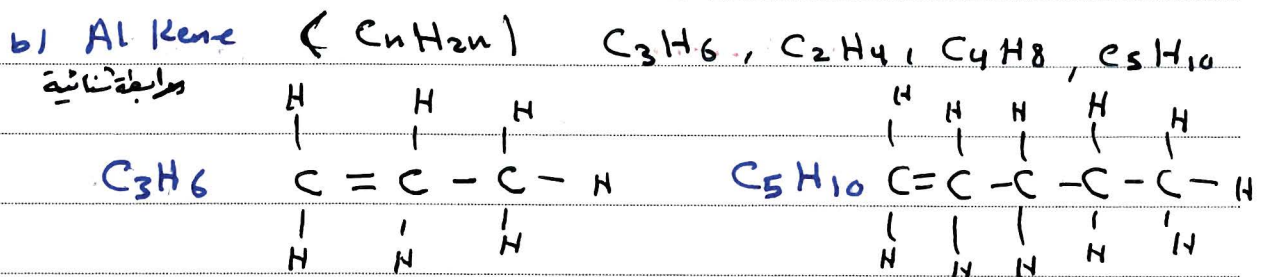 b) Alkene ( CnH2n ) C3H6 , C2H4 , C4H8 , C5H10
رابطة ثنائية
H H H H H H H H
C3H6 C = C - C - H C5H10 C = C - C - C - C - H
H H H H H H H H